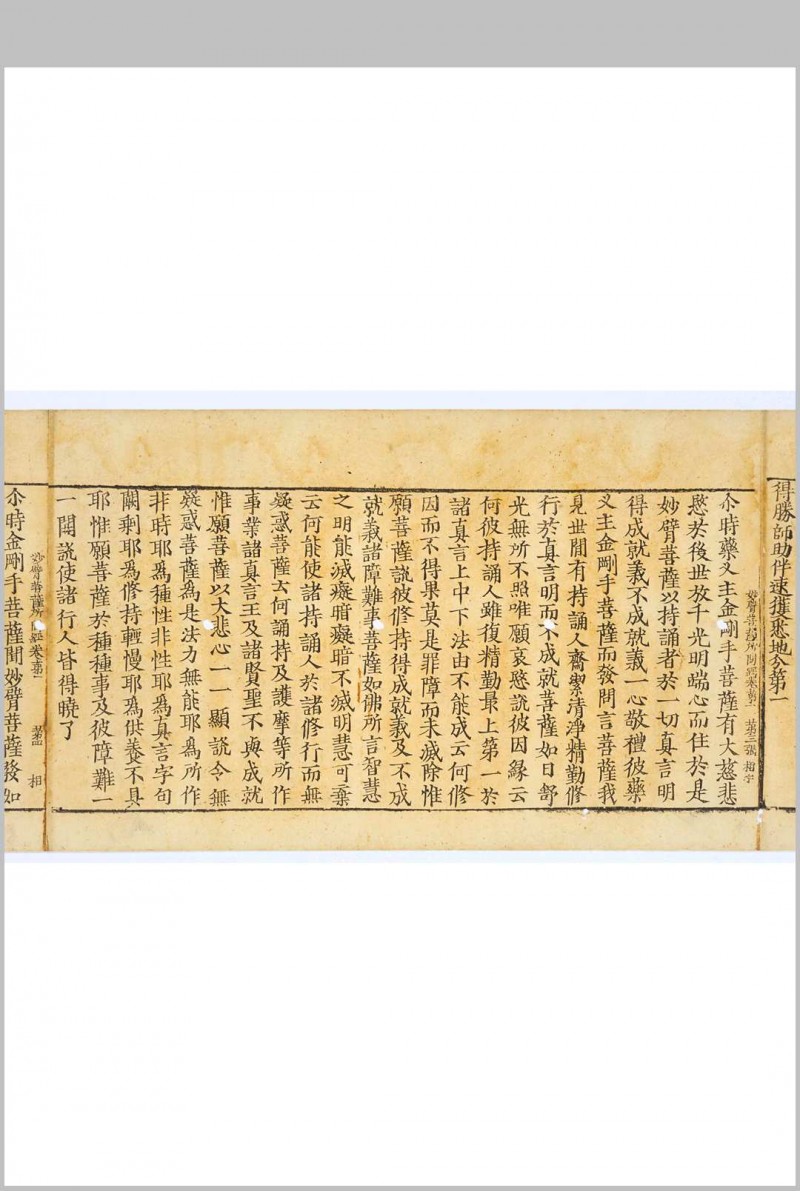 得勝師助伴速獲悉地分第一
妙臂菩薩所問經卷第一 第三張 相字
尒時藥叉主金剛手菩薩有大慈悲
愍於後世放千光明端心而住於是
妙臂菩薩以持誦者於一切真言明
得成就義不成就義一心敬禮彼藥
叉主金剛手菩薩而發問言菩薩我
見世間有持誦人齋潔清淨精勤修
行於真言明而不成就菩薩如日舒
光無所不照唯願哀愍說彼因緣云
何彼持誦人雖復精勤最上第一於
諸真言上中下法由不能成云何修
因而不得果莫是罪障而未滅除惟
願菩薩說彼修持得成就義及不成
就義諸障難事菩薩如佛所言智慧
之明能滅癡暗癡暗不滅明慧可棄
云何能使諸持誦人於諸修行而無
疑惑菩薩云何誦持及護摩等所作
事業諸真言王及諸賢聖不與成就
惟願菩薩以大悲心一一顯說令無
疑惑菩薩為是法力無能耶為所作
非時耶為種性非性耶為真言字句
闕剩耶為修持輕慢耶為供養不具
耶惟願菩薩於種種事及彼障難一
一開說使諸行人皆得曉了
妙臂菩薩所問經卷第一 第四 相
尒時金剛手菩薩聞妙臂菩薩發如